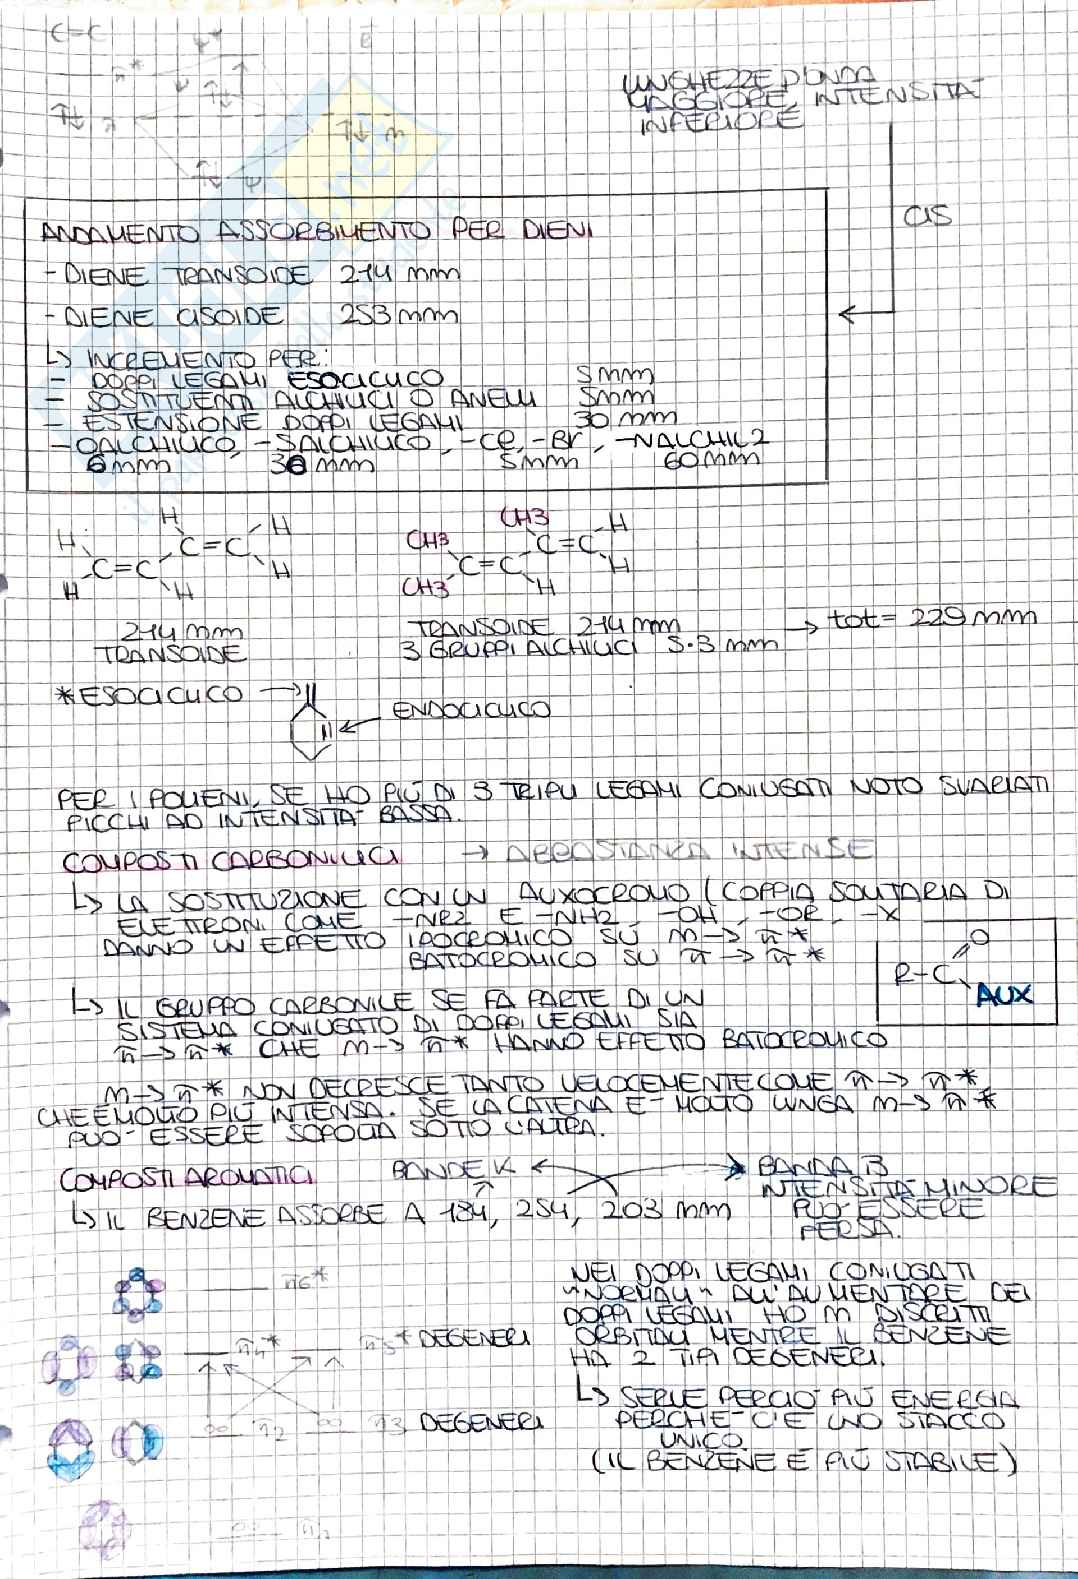 C=C
ψ*
E
π*
ψ
π
n
ψ
LUNGHEZZE D'ONDA
MAGGIORE, INTENSITA'
INFERIORE
CIS
ANDAMENTO ASSORBIMENTO PER DIENI
- DIENE TRANSOIDE 214 mm
- DIENE CISOIDE 253 mm
↳ INCREMENTO PER:
- DOPPI LEGAMI ESOCICLICO 5mm
- SOSTITUENTI ALCHILICI O ANELLI 5mm
- ESTENSIONE DOPPI LEGAMI 30 mm
- OALCHILICO, -SALCHILICO, -Cl, -Br, -NALCHIL2
6mm 30mm 5mm 60mm
H H CH3 H
H C=C H CH3 C=C H
H C=C H CH3 C=C H
214 mm TRANSOIDE 214 mm → tot = 229 mm
TRANSOIDE 3 GRUPPI ALCHILICI 5·3 mm
*ESOCICLICO →
← ENDOCICLICO
PER I POLIENI, SE HO PIÙ DI 3 TRIPLI LEGAMI CONIUGATI NOTO SVARIATI
PICCHI AD INTENSITA' BASSA.
COMPOSTI CARBONILICI → ABBASTANZA INTENSE
↳ LA SOSTITUZIONE CON UN AUXOCROMO (COPPIA SOLITARIA DI
ELETTRONI COME -NR2 E -NH2, -OH, -OR, -X
DANNO UN EFFETTO IPOCROMICO SU n → π*
BATOCROMICO SU π → π*
O
R-C
AUX
↳ IL GRUPPO CARBONILE SE FA PARTE DI UN
SISTEMA CONIUGATO DI DOPPI LEGAMI SIA
π → π* CHE n → π* HANNO EFFETTO BATOCROMICO
n → π* NON DECRESCE TANTO VELOCEMENTE COME π → π*
CHE È MOLTO PIÙ INTENSA. SE LA CATENA E' MOLTO LUNGA n → π*
PUO' ESSERE SOPOLTA SOTTO L'ALTRA.
COMPOSTI AROMATICI BANDE K BANDA B
INTENSITA' MINORE
↳ IL BENZENE ASSORBE A 184, 254, 203 mm PUO' ESSERE
PERSA.
π6*
π4* π5* DEGENERI
π2 π3 DEGENERI
NEI DOPPI LEGAMI CONIUGATI
"NORMALI" ALL'AUMENTARE DEI
DOPPI LEGAMI HO n DISCRETI
ORBITALI MENTRE IL BENZENE
HA 2 TIPI DEGENERI.
↳ SERVE PERCIO' PIÙ ENERGIA
PERCHE' C'E' UNO STACCO
UNICO.
(IL BENZENE È PIÙ STABILE)